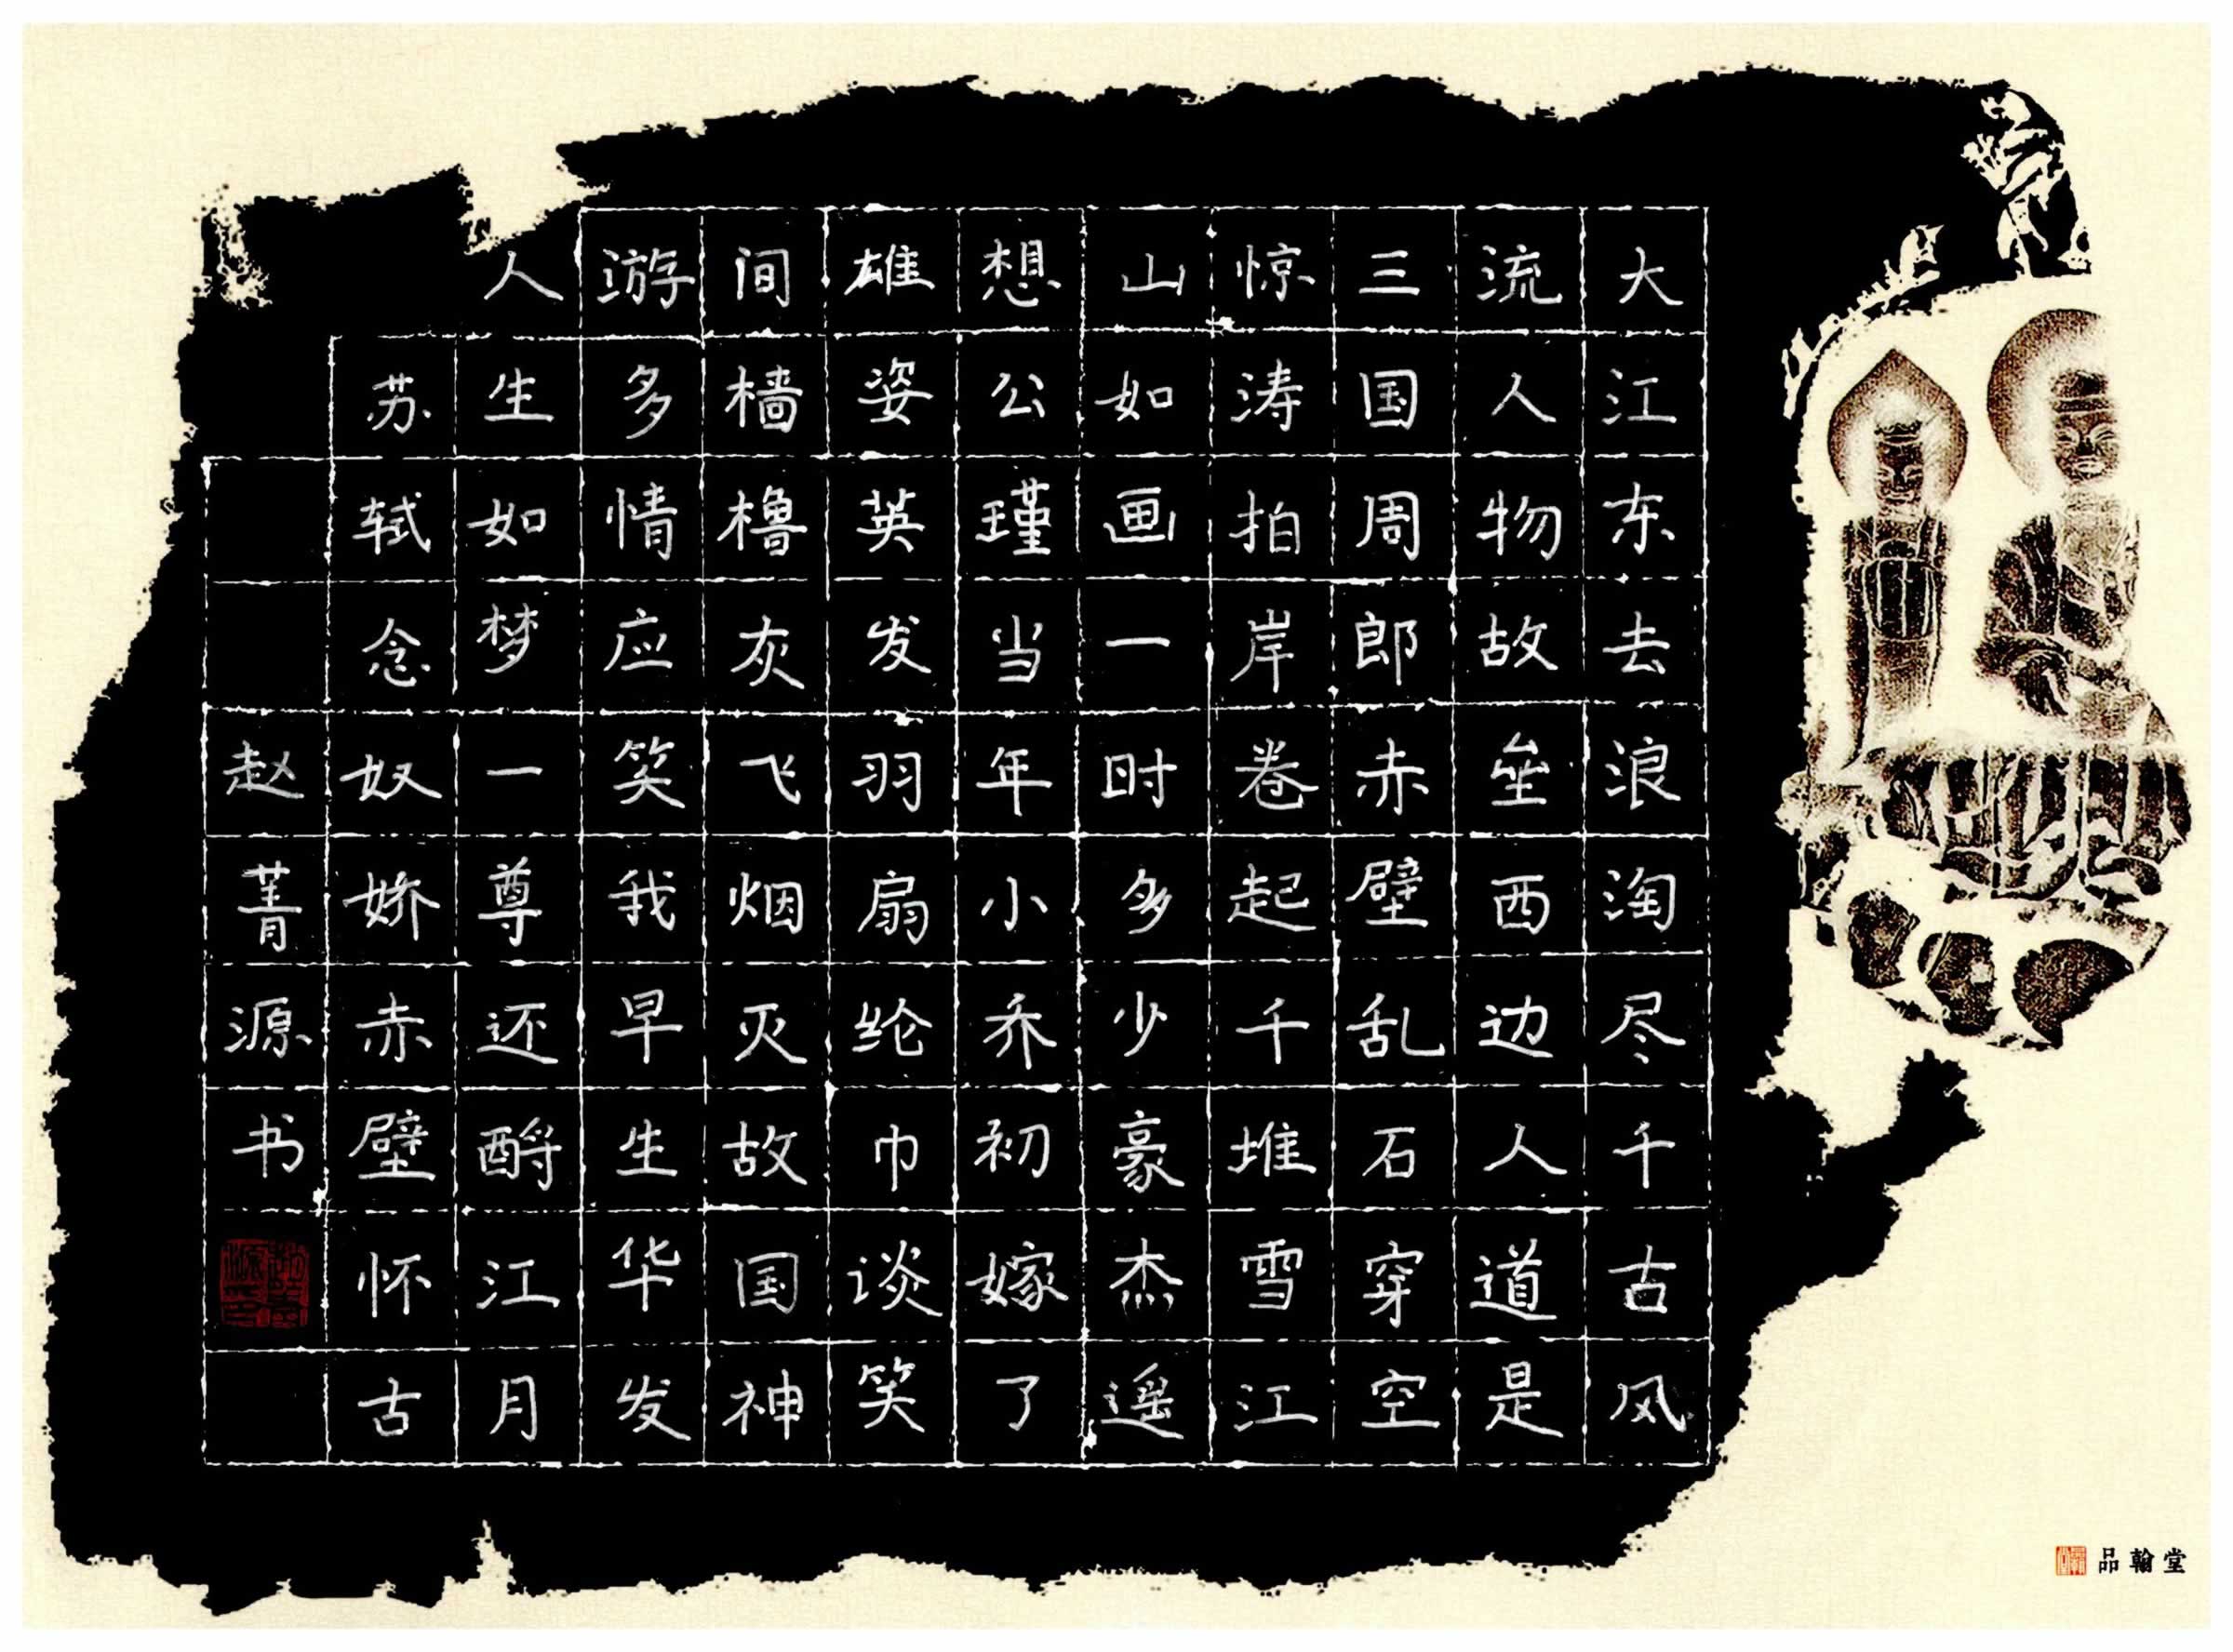 大江东去浪淘尽千古风
流人物故垒西边人道是
三国周郎赤壁乱石穿空
惊涛拍岸卷起千堆雪江
山如画一时多少豪杰遥
想公瑾当年小乔初嫁了
雄姿英发羽扇纶巾谈笑
间樯橹灰飞烟灭故国神
游多情应笑我早生华发
人生如梦一尊还酹江月
苏轼念奴娇赤壁怀古
赵菁源书
品翰堂